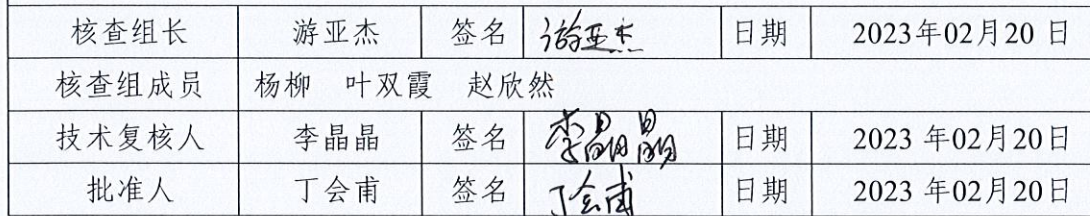 核查组长 游亚杰 签名 游亚杰 日期 2023年02月20 日
核查组成员 杨柳 叶双霞 赵欣然
技术复核人 李晶晶 签名 李晶晶 日期 2023 年02月20日
批准人 丁会甫 签名 丁会甫 日期 2023 年02月20日